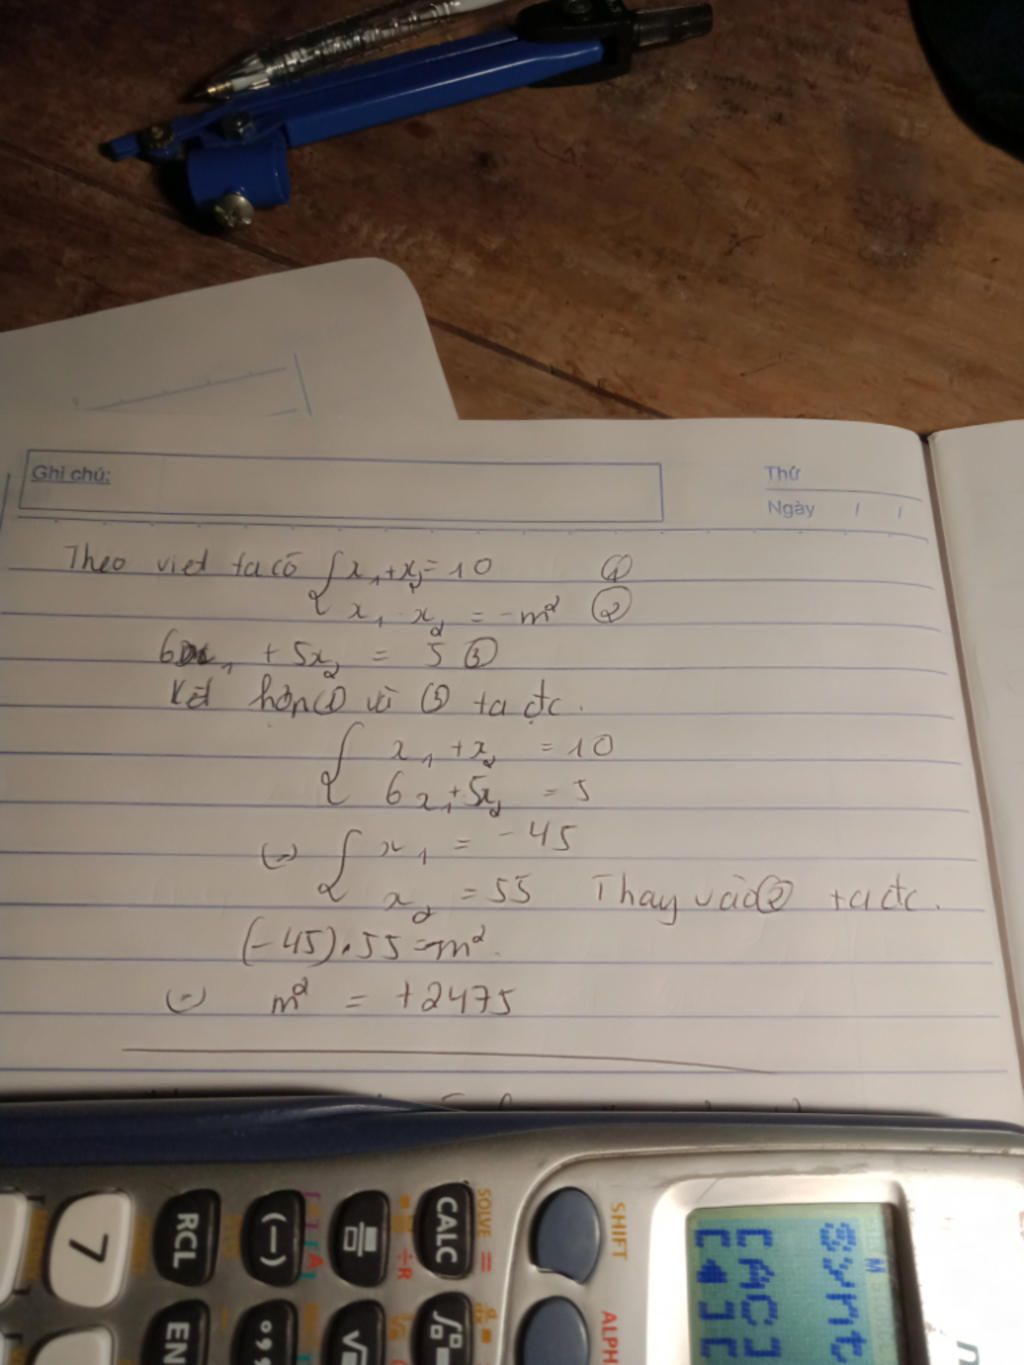 Ghi chú:
Thứ
Ngày / /
Theo viet ta có { x₁ + x₂ = 10 ①
x₁ . x₂ = -m² ②
6x₁ + 5x₂ = 5 ③
Kết hợp ① và ③ ta đc.
{ x₁ + x₂ = 10
6x₁ + 5x₂ = 5
(=) { x₁ = -45
x₂ = 55 Thay vào ② ta đc.
(-45).55 = -m².
(=) m² = +2475
SHIFT
SOLVE =
CALC
÷R
(−)
RCL
7
ALPH
∫
√
°,,,
EN
M
Synt
[AC]